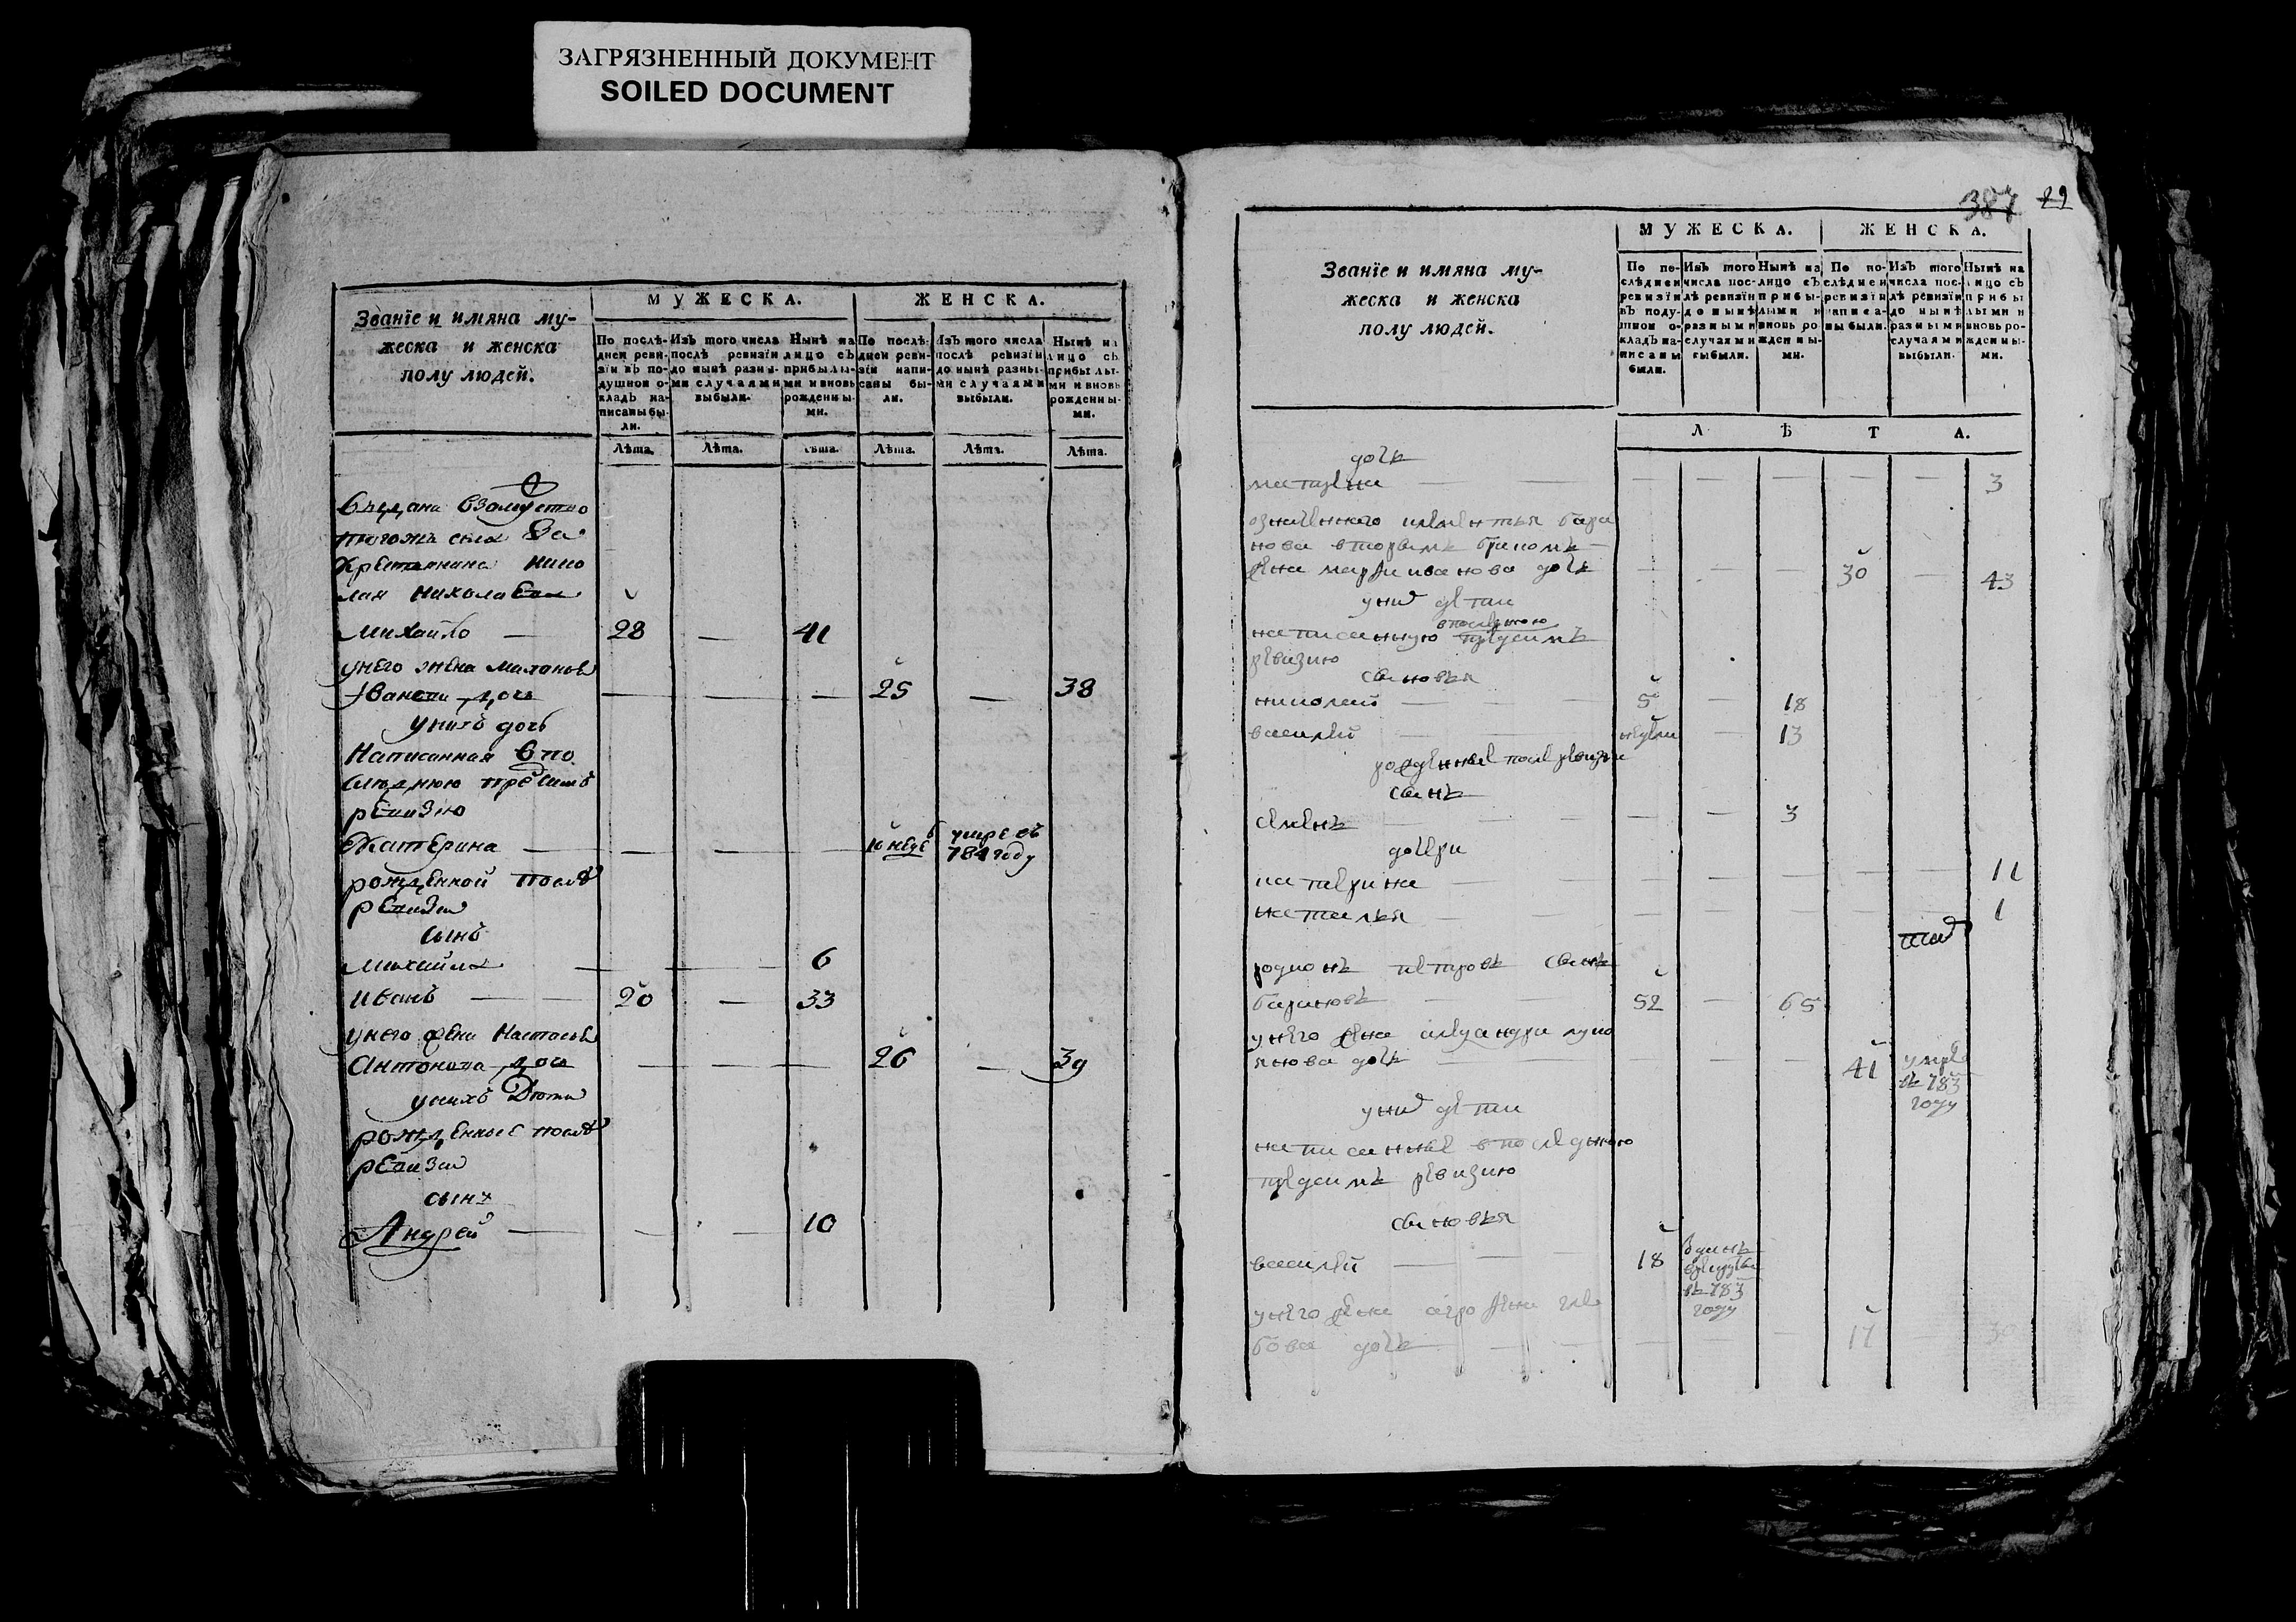 ЗАГРЯЗНЕННЫЙ ДОКУМЕНТ
SOILED DOCUMENT
Званїе и имяна му-
жеска и женска
полу людей.
МУЖЕСКА.
ЖЕНСКА.
По послѣ-
дней реви-
зїи въ по-
душной о-
кладъ на-
писаны бы-
ли.
Изъ того числа
послѣ ревизїи
до нынѣ разны-
ми случаями
выбыли.
Нынѣ на
лицо съ
прибылы-
ми и вновь
рожденны-
ми.
По послѣ-
дней реви-
зїи напи-
саны бы-
ли.
Изъ того числа
послѣ ревизїи
до нынѣ разны-
ми случаями
выбыли.
Нынѣ на
лицо съ
прибылы-
ми и вновь
рожденны-
ми.
Лѣта. Лѣта. Лѣта. Лѣта. Лѣта. Лѣта.
выдана взамуство
тогожъ села за
крестьянина нико
лая николаева
михайло — 28 — 41
унего жена маланья
иванова дочь — — — 25 — 38
унихъ дочь
написанная впо
следнюю пред симъ
ревизию
катерина — — — — 10 неде умре въ
784 году
рожденной после
ревизии
сынъ
михайла — — — 6
иванъ — 20 — 33
унего жена настасья
антонова дочь — — — 26 — 39
унихъ дети
рожденные после
ревизии
сынъ
Андрей — — — 10
387 29
Званїе и имяна му-
жеска и женска
полу людей.
МУЖЕСКА.
ЖЕНСКА.
По по-
слѣдней
ревизїи
въ поду-
шной о-
кладъ на-
писаны
были.
Изъ того
числа пос-
лѣ ревизїи
до нынѣ
разными
случаями
выбыли.
Нынѣ на
лицо съ
прибы-
лыми и
вновь ро-
жденны-
ми.
По по-
слѣдней
ревизїи
написа-
ны были.
Изъ того
числа пос-
лѣ ревизїи
до нынѣ
разными
случаями
выбыли.
Нынѣ на
лицо съ
прибы
лыми и
вновь ро-
жденны-
ми.
ЛѢТА.
дочь
матрена — — — — — — 3
означенного бара
нова вторымъ бракомъ
жена марфа иванова дочь — — — 30 — 43
уних дети
написанную впоследнюю предсимъ
ревизию
сыновья
николай — 5 — 18
василей — недели — 13
рожденные после ревизии
сынъ
семенъ — — — 3
дочери
катерина — — — — — — 11
наталья — — — — — — 1
родионъ петровъ сынъ
бариновъ — 52 — 65
унего жена александра лукя
янова дочь — — — — 41 умре
въ 783
году
уних дети
написанные впоследнюю
предсимъ ревизию
сыновья
василей — 18 вданъ
врекруты
въ 783
году
унего жена агрофена гле
бова дочь — — — 17 — 30